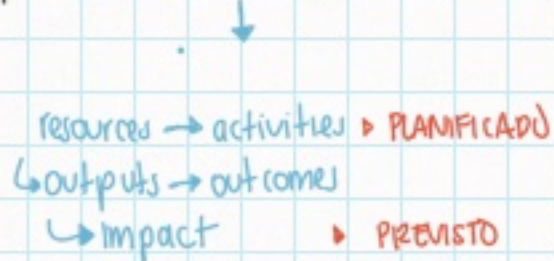 resources → activities ▸ PLANIFICADO
↳ outputs → outcomes
↳ impact ▸ PREVISTO